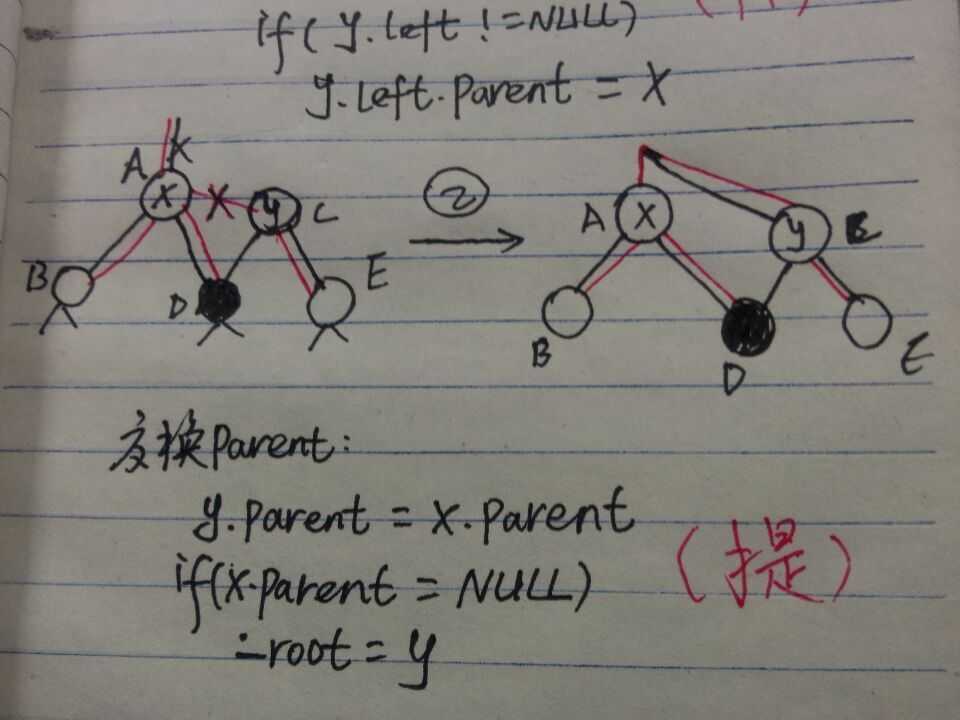 if( y.left != NULL)
y.left.parent = x
A x y C ② A x y
B D E B D E
变换parent:
y.parent = x.parent
if(x.parent = NULL)
root = y
(提)